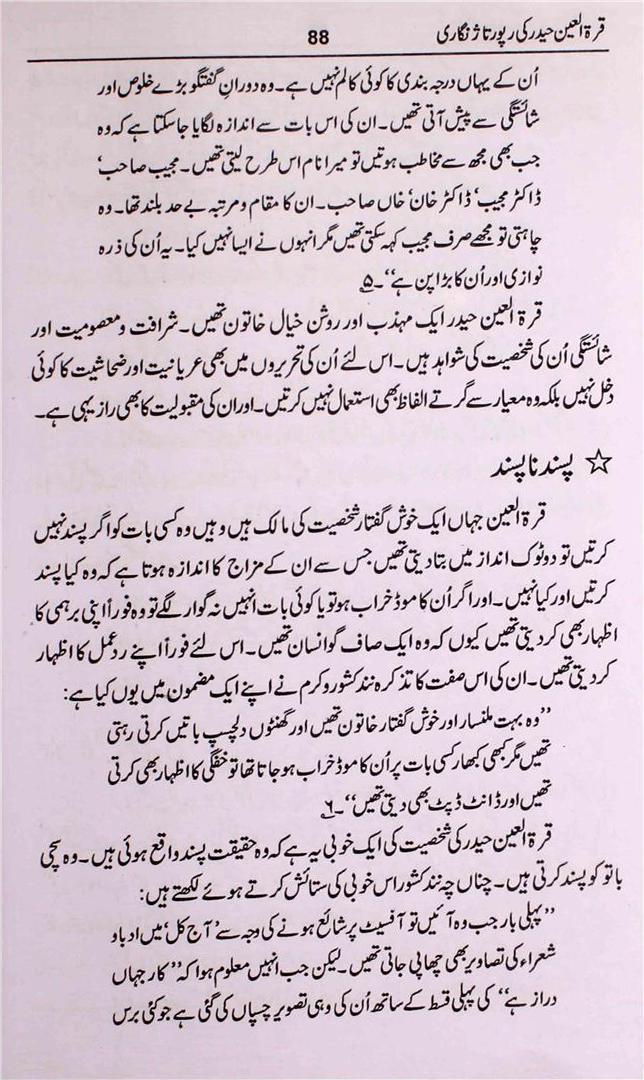 قرۃ العین حیدر کی رپورتاژ نگاری
88
اُن کے یہاں درجہ بندی کا کوئی کالم نہیں ہے۔ وہ دورانِ گفتگو بڑے خلوص اور
شائستگی سے پیش آتی تھیں۔ ان کی اس بات سے اندازہ لگایا جاسکتا ہے کہ وہ
جب بھی مجھ سے مخاطب ہوتیں تو میرا نام اس طرح لیتی تھیں۔ مجیب صاحب،
ڈاکٹر مجیب، ڈاکٹر خان، خاں صاحب۔ ان کا مقام و مرتبہ بے حد بلند تھا۔ وہ
چاہتی تو مجھے صرف مجیب کہہ سکتی تھیں مگر انہوں نے ایسا نہیں کیا۔ یہ اُن کی ذرہ
نوازی اور اُن کا بڑاپن ہے‘‘۔۵
قرۃ العین حیدر ایک مہذب اور روشن خیال خاتون تھیں۔ شرافت و معصومیت اور
شائستگی اُن کی شخصیت کی شواہد ہیں۔ اس لئے اُن کی تحریروں میں بھی عریانیت اور ضحاشیت کا کوئی
دخل نہیں بلکہ وہ معیار سے گرتے الفاظ بھی استعمال نہیں کرتیں۔ اور ان کی مقبولیت کا بھی راز یہی ہے۔
☆ پسند ناپسند
قرۃ العین جہاں ایک خوش گفتار شخصیت کی مالک ہیں وہیں وہ کسی بات کو اگر پسند نہیں
کرتیں تو دوٹوک انداز میں بتا دیتی تھیں جس سے ان کے مزاج کا اندازہ ہوتا ہے کہ وہ کیا پسند
کرتیں اور کیا نہیں۔ اور اگر اُن کا موڈ خراب ہو تو یا کوئی بات انہیں نہ گوار لگے تو وہ فوراً اپنی برہمی کا
اظہار بھی کر دیتی تھیں کیوں کہ وہ ایک صاف گو انسان تھیں۔ اس لئے فوراً اپنے ردعمل کا اظہار
کر دیتی تھیں۔ ان کی اس صفت کا تذکرہ نند کشور وکرم نے اپنے ایک مضمون میں یوں کیا ہے:
’’وہ بہت ملنسار اور خوش گفتار خاتون تھیں اور گھنٹوں دلچسپ باتیں کرتی رہتی
تھیں مگر کبھی کبھار کسی بات پر اُن کا موڈ خراب ہو جاتا تھا تو خفگی کا اظہار بھی کرتی
تھیں اور ڈانٹ ڈپٹ بھی دیتی تھیں‘‘۔۶
قرۃ العین حیدر کی شخصیت کی ایک خوبی یہ ہے کہ وہ حقیقت پسند واقع ہوئی ہیں۔ وہ سچی
باتو کو پسند کرتی ہیں۔ چناں چہ نند کشور اس خوبی کی ستائش کرتے ہوئے لکھتے ہیں:
’’پہلی بار جب وہ آئیں تو آفسیٹ پر شائع ہونے کی وجہ سے ’آج کل‘ میں ادبا و
شعراء کی تصاویر بھی چھاپی جاتی تھیں۔ لیکن جب انہیں معلوم ہوا کہ ’’کار جہاں
دراز ہے‘‘ کی پہلی قسط کے ساتھ اُن کی وہی تصویر چسپاں کی گئی ہے جو کئی برس